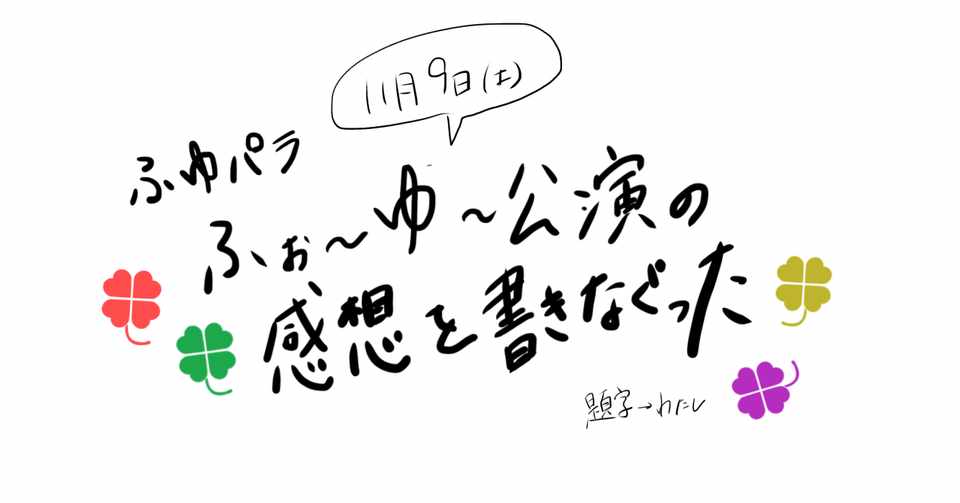 11月9日(土)
ふゆパラ
ふぉ〜ゆ〜公演の
感想を書きなぐった
題字→わたし